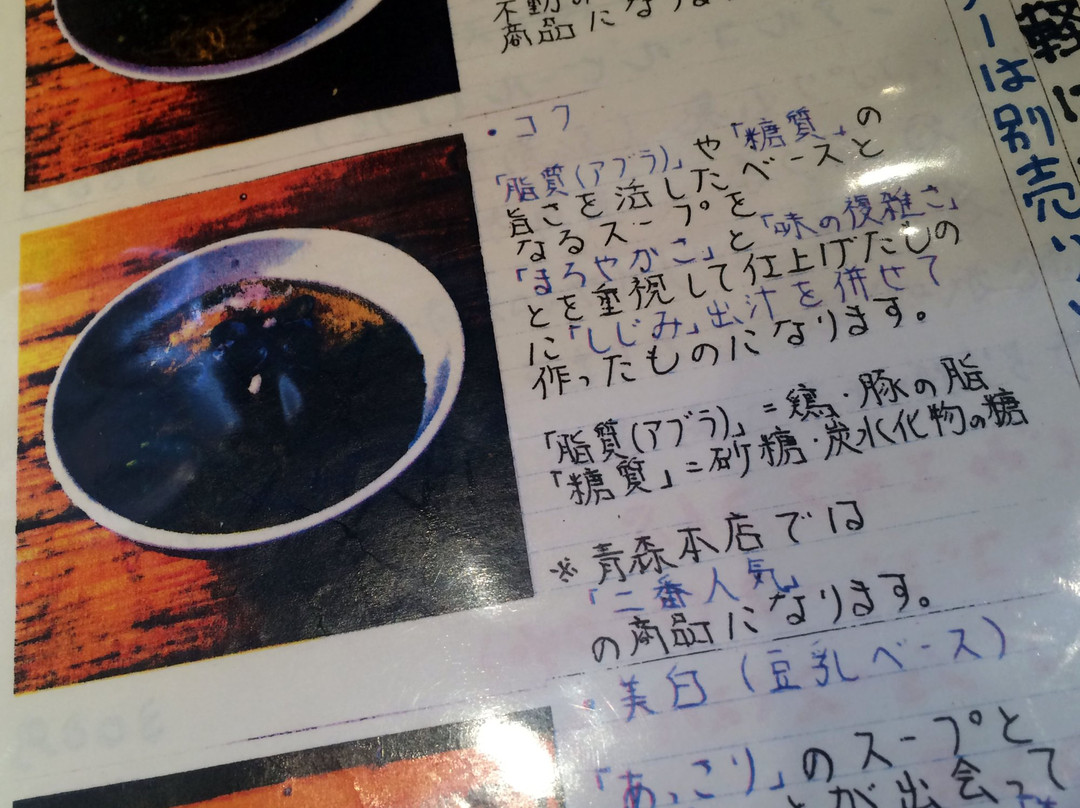 商品になりま
・コク
「脂質(アブラ)」や「糖質」の
旨さを活したベースと
なるスープを
「まろやかこ」と「味の複雑さ」
とを重視して仕上げたしの
に「しじみ」出汁を併せて
作ったものになります。
「脂質(アブラ)」=鶏・豚の脂
「糖質」=砂糖・炭水化物の糖
※青森本店では
「二番人気」
の商品になります。
・美白(豆乳ベース)
「あっこり」のスープと
とが出会って
ーは別売り
軽に